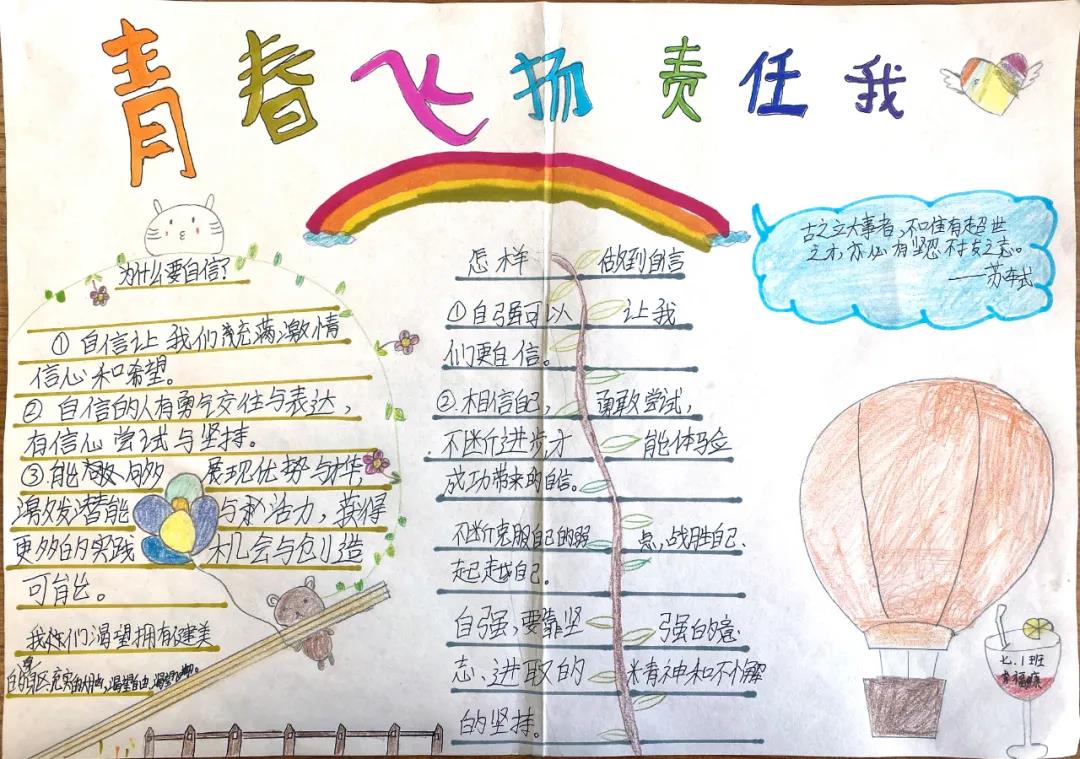 青春飞扬 责任我
古之立大事者，不惟有超世
之才，亦必有坚忍不拔之志。
——苏轼
为什么要自信？
① 自信让我们充满激情
信心和希望。
② 自信的人有勇气交往与表达，
有信心尝试与坚持。
③ 能够 展现优势与才华，
激发潜能与 活力，获得
更多的实践机会与创造
可能。
我们渴望拥有健美
的 充实的 渴望自由，渴望
怎样做到自信
① 自强可以让我
们更自信。
② 相信自己，勇敢尝试，
不断进步，才能体验
成功带来的自信。
不断克服自己的弱点，战胜自己、
超越自己。
自强，要靠坚强的意
志、进取的精神和不懈
的坚持。
七.1班